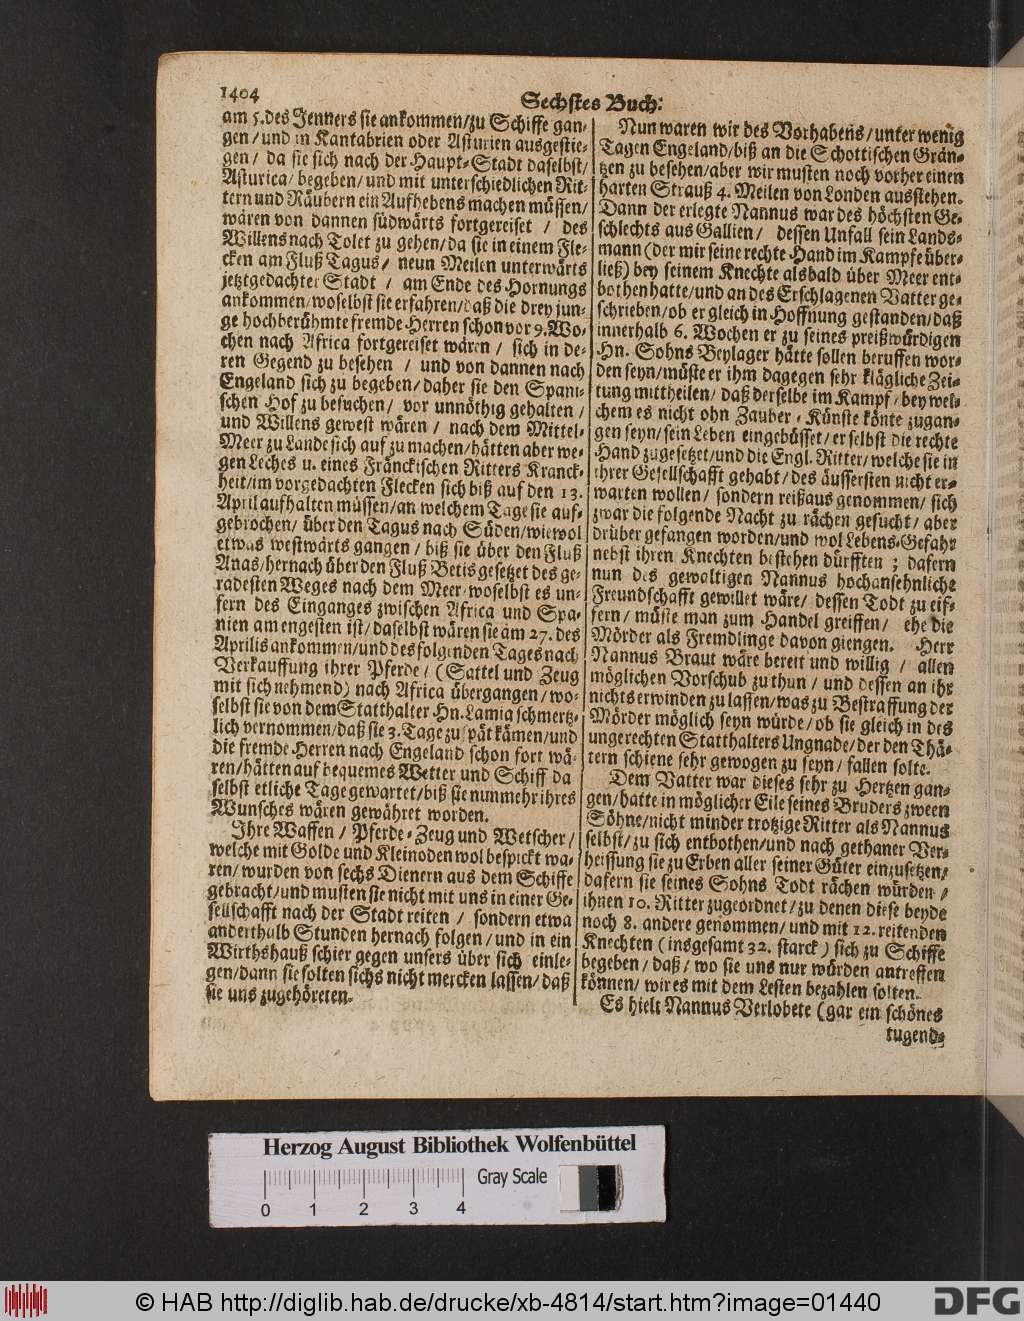 1404
Sechstes Buch:
am 5. des Jenners sie ankommen/zu Schiffe gan-
gen/und in Kantabrien oder Asturien ausgestie-
gen/ da sie sich nach der Haupt-Stadt daselbst/
Asturica/ begeben/ und mit unterschiedlichen Rit-
tern und Räubern ein Aufhebens machen müssen/
wären von dannen südwärts fortgereiset / des
Willens nach Tolet zu gehen/da sie in einem Fle-
cken am Fluß Tagus/ neun Meilen unterwärts
jetztgedachter Stadt / am Ende des Hornungs
ankommen/woselbst sie erfahren/daß die drey jun-
ge hochberühmte fremde Herren schon vor 9. Wo-
chen nach Africa fortgereiset wären / sich in de-
ren Gegend zu besehen / und von dannen nach
Engeland sich zu begeben/daher sie den Spani-
schen Hof zu besuchen/ vor unnöthig gehalten /
und Willens gewest wären / nach dem Mittel-
Meer zu Lande sich auf zu machen/hätten aber we-
gen Leches u. eines Fränckischen Ritters Kranck-
heit/im vorgedachten Flecken sich biß auf den 13.
April aufhalten müssen/an welchem Tage sie auf-
gebrochen/ über den Tagus nach Süden/wiewol
etwas westwärts gangen / biß sie über den Fluß
Anas/hernach über den Fluß Betis gesetzet des ge-
radesten Weges nach dem Meer/woselbst es un-
fern des Einganges zwischen Africa und Spa-
nien am engesten ist/daselbst wären sie am 27. des
Aprilis ankommen/und des folgenden Tages nach
Verkauffung ihrer Pferde/ (Sattel und Zeug
mit sich nehmend) nach Africa übergangen/wo-
selbst sie von dem Statthalter Hn. Lamia schmertz-
lich vernommen/daß sie 3. Tage zu spät kämen/und
die fremde Herren nach Engeland schon fort wä-
ren/hätten auf bequemes Wetter und Schiff da
selbst etliche Tage gewartet/biß sie nunmehr ihres
Wunsches wären gewähret worden.
Ihre Waffen / Pferde-Zeug und Wetscher/
welche mit Golde und Kleinoden wol bespickt wa-
ren/ wurden von sechs Dienern aus dem Schiffe
gebracht/und musten sie nicht mit uns in einer Ge-
sellschafft nach der Stadt reiten / sondern etwa
anderthalb Stunden hernach folgen/und in ein
Wirthshauß schier gegen unsers über sich einle-
gen/dann sie solten sichs nicht mercken lassen/daß
sie uns zugehöreten.
Nun waren wir des Vorhabens/unter wenig
Tagen Engeland/biß an die Schottischen Grän-
tzen zu besehen/aber wir musten noch vorher einen
harten Strauß 4. Meilen von Londen ausstehen.
Dann der erlegte Nannus war des höchsten Ge-
schlechts aus Gallien/ dessen Unfall sein Lands-
mann (der mir seine rechte Hand im Kampfe über-
ließ) bey seinem Knechte alsbald über Meer ent-
bothen hatte/und an des Erschlagenen Vatter ge-
schrieben/ob er gleich in Hoffnung gestanden/daß
innerhalb 6. Wochen er zu seines preißwürdigen
Hn. Sohns Beylager hätte sollen beruffen wor-
den seyn/müste er ihm dagegen sehr klägliche Zei-
tung mittheilen/ daß derselbe im Kampf/bey wel-
chem es nicht ohn Zauber-Künste könte zugan-
gen seyn/sein Leben eingebüsset/er selbst die rechte
Hand zugesetzet/und die Engl. Ritter/welche sie in
ihrer Gesellschafft gehabt/des äussersten nicht er-
warten wollen/ sondern reißaus genommen/ sich
zwar die folgende Nacht zu rächen gesucht/ aber
drüber gefangen worden/und wol Lebens-Gefahr
nebst ihren Knechten bestehen dürfften ; dafern
nun des gewaltigen Nannus hochansehnliche
Freundschafft gewillet wäre/ dessen Todt zu eif-
fern/ müste man zum Handel greiffen/ ehe die
Mörder als Fremdlinge davon giengen. Herr
Nannus Braut wäre bereit und willig / allen
möglichen Vorschub zu thun / und dessen an ihr
nichts erwinden zu lassen/was zu Bestraffung der
Mörder möglich seyn würde/ob sie gleich in des
ungerechten Statthalters Ungnade/der den Thä-
tern schiene sehr gewogen zu seyn/ fallen solte.
Dem Vatter war dieses sehr zu Hertzen gan-
gen/hatte in möglicher Eile seines Bruders zween
Söhne/nicht minder trotzige Ritter als Nannus
selbst/zu sich entbothen/und nach gethaner Ver-
heissung sie zu Erben aller seiner Güter einzusetzen/
dafern sie seines Sohns Todt rächen würden /
ihnen 10. Ritter zugeordnet/zu denen diese beyde
noch 8. andere genommen/und mit 12. reitenden
Knechten (insgesamt 32. starck) sich zu Schiffe
begeben/ daß/ wo sie uns nur würden antreffen
können/ wir es mit dem Lesten bezahlen solten.
Es hielt Nannus Verlobete (gar ein schönes
tugend-
Herzog August Bibliothek Wolfenbüttel
Gray Scale
0 1 2 3 4
© HAB http://diglib.hab.de/drucke/xb-4814/start.htm?image=01440
DFG